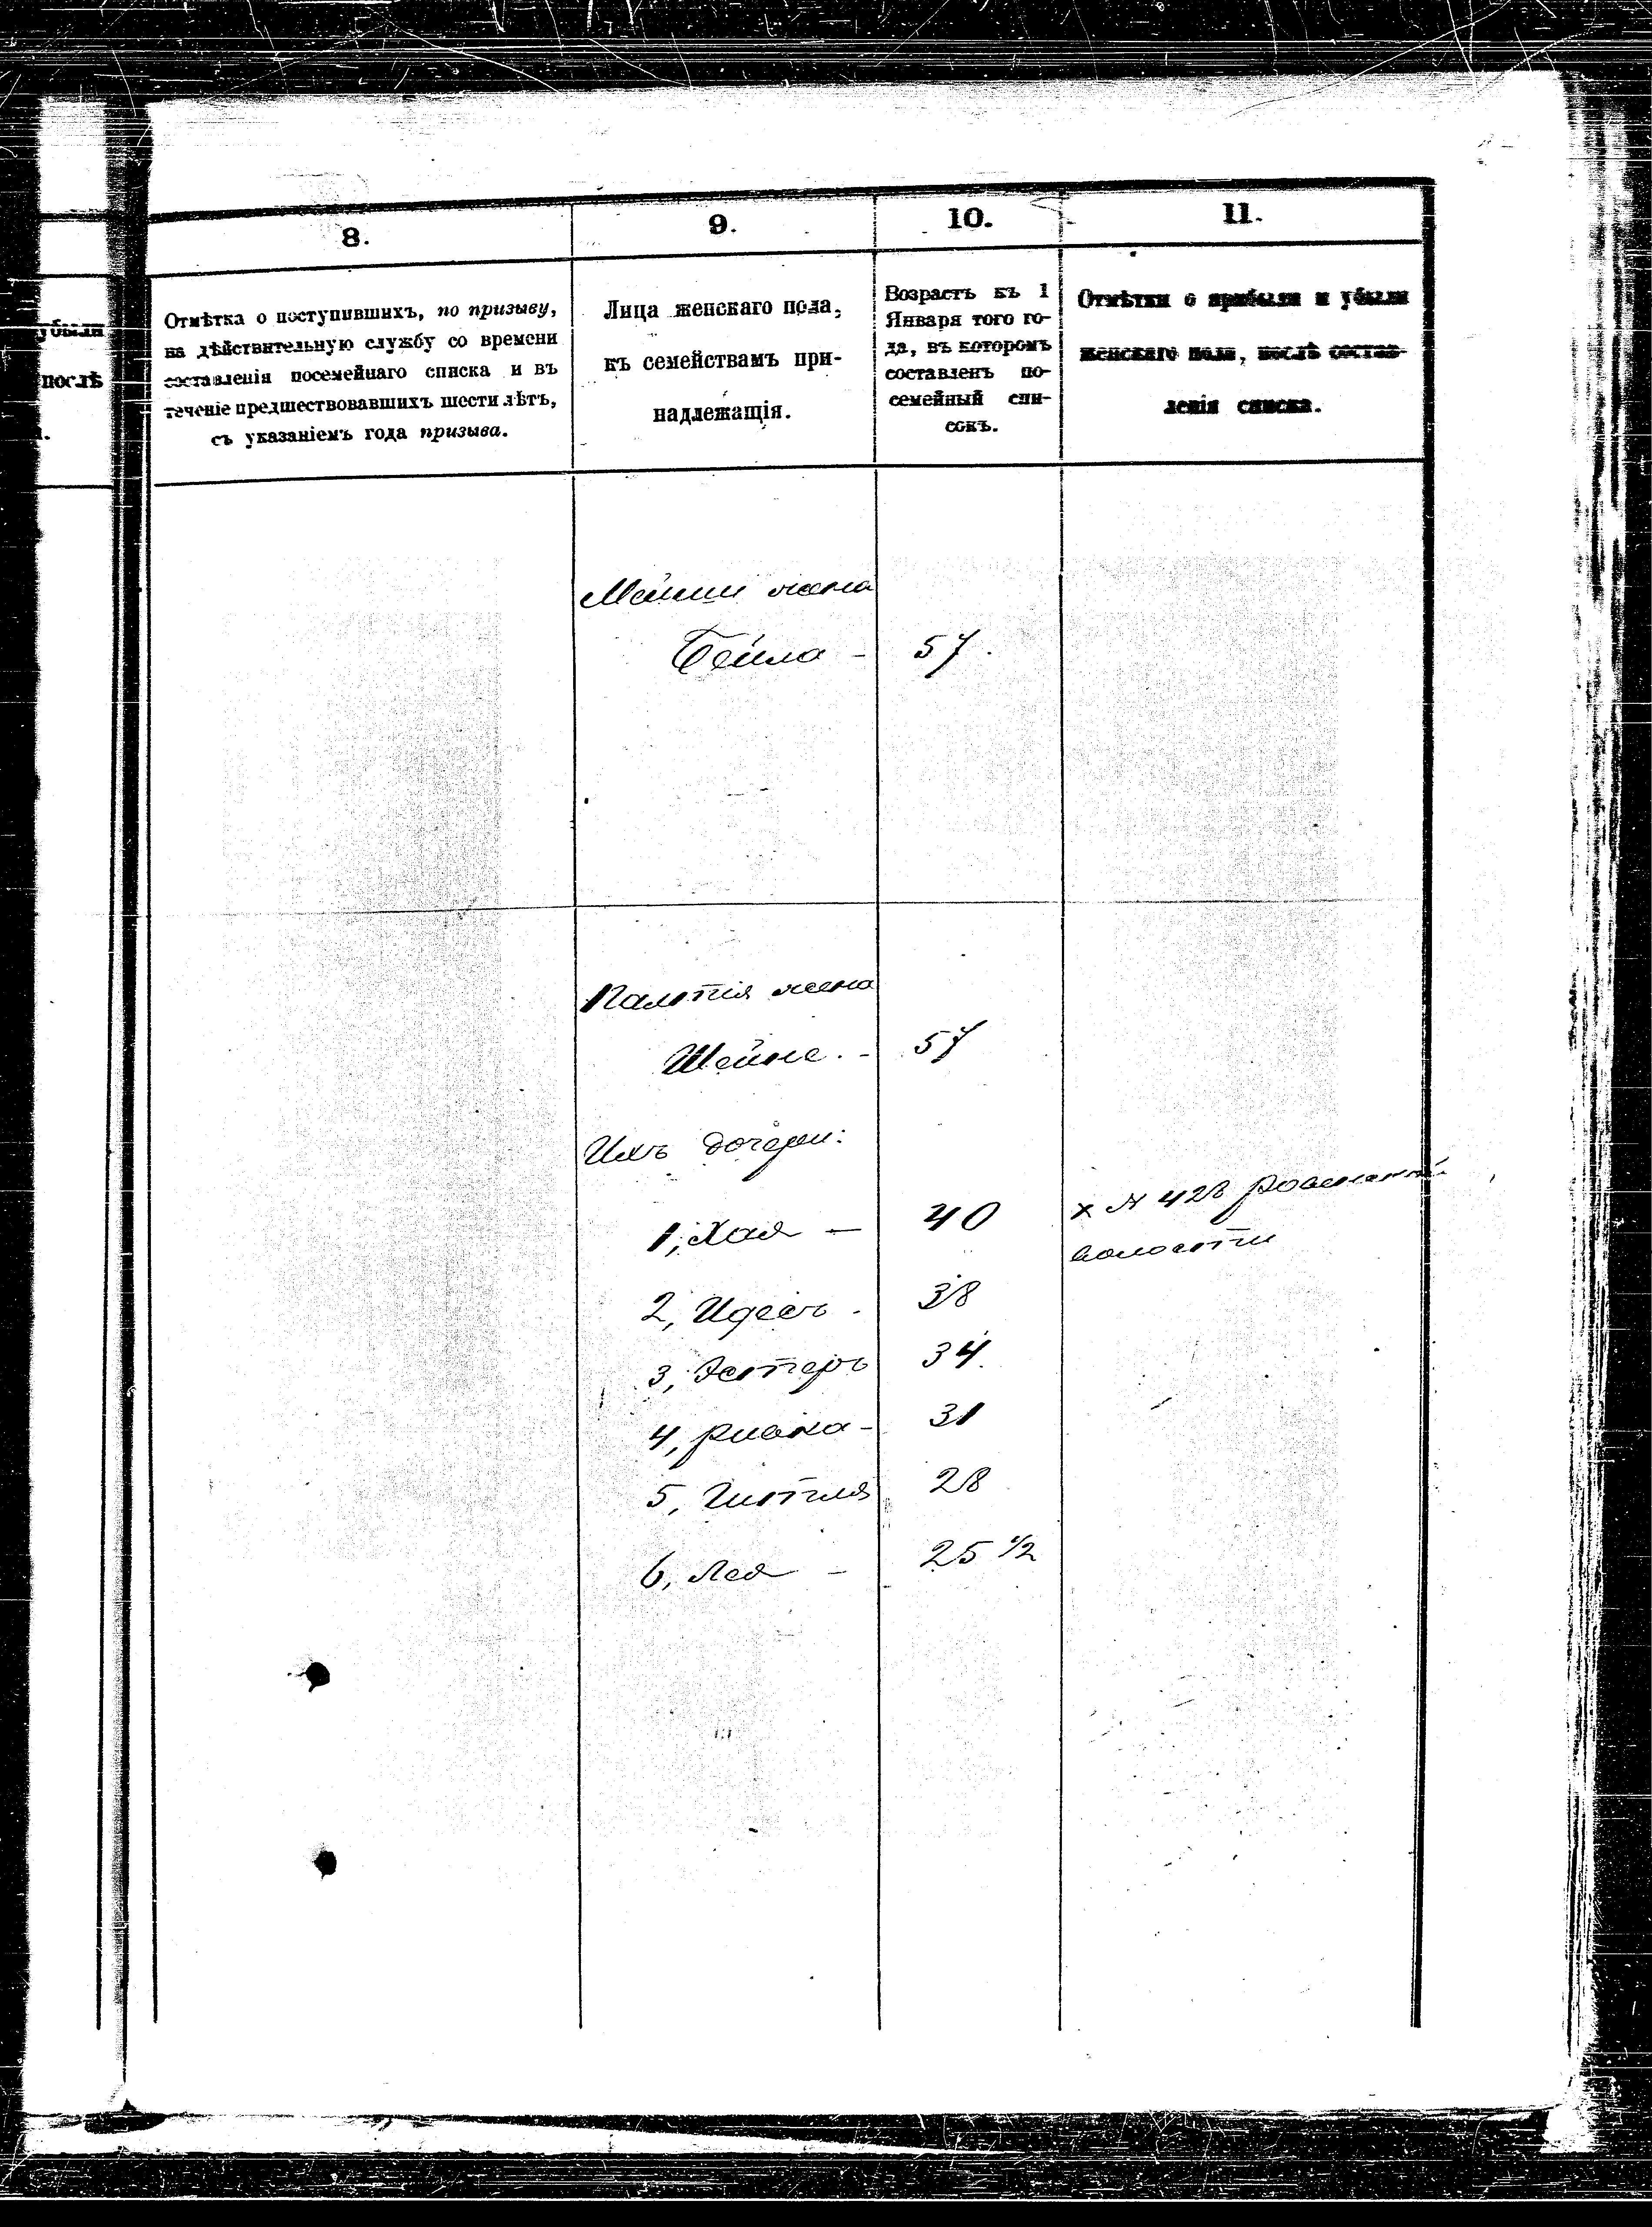 убыли
послѣ
8.
9.
10.
11.
Отмѣтка о поступившихъ, по призыву,
на дѣйствительную службу со времени
составленія посемейнаго списка и въ
теченіе предшествовавшихъ шести лѣтъ,
съ указаніемъ года призыва.
Лица женскаго пола,
къ семействамъ при-
надлежащія.
Возрастъ къ 1
Января того го-
да, въ которомъ
составленъ по-
семейный спи-
сокъ.
Отмѣтки о прибыли и убыли
женскаго пола, послѣ состав-
ленія списка.
жена
Бейла - 57.
жена
Шейне. - 57
Ихъ дочери:
1, Хая — 40 х № 428
волости
2, Идесъ - 38
3, Эстеръ 34.
4, - 31
5, 28
6, Лея - 25 1/2